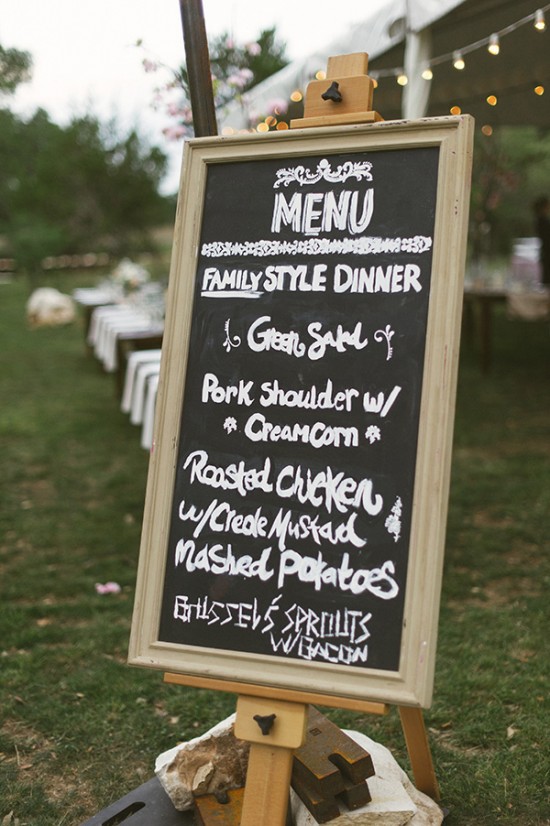 MENU
FAMILY STYLE DINNER
Green Salad
Pork Shoulder w/
Creamcorn
Roasted Chicken
w/Creole Mustard
Mashed Potatoes
BRUSSEL'S SPROUTS
W/BACON